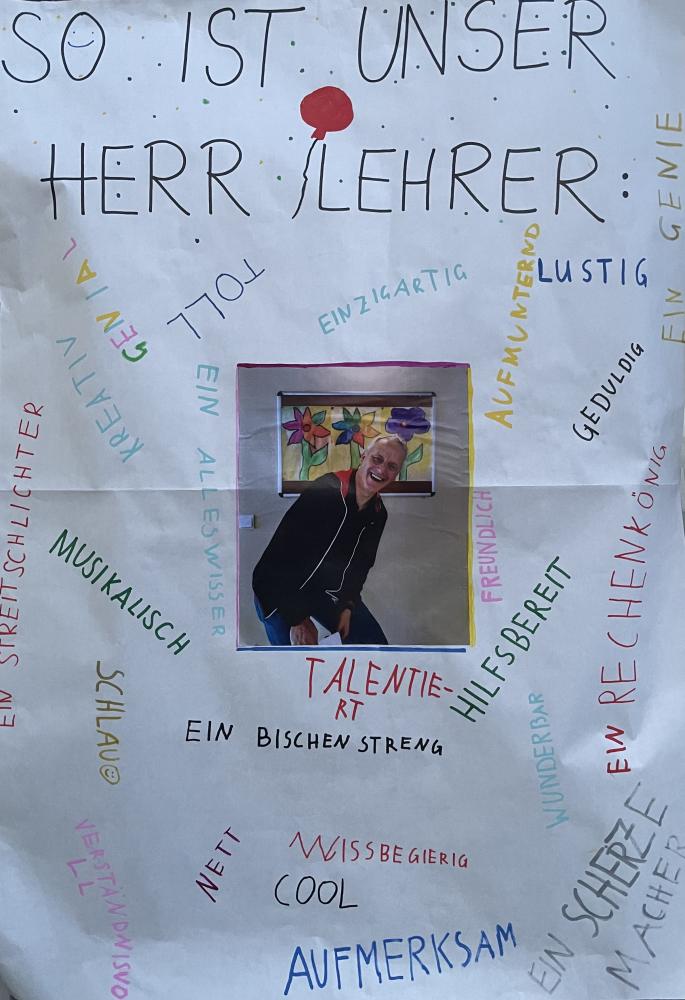 SO IST UNSER
HERR LEHRER:
EIN GENIE
GENIAL
TOLL
EINZIGARTIG
AUFMUNTERND
LUSTIG
KREATIV
EIN ALLESWISSER
GEDULDIG
EIN STREITSCHLICHTER
MUSIKALISCH
FREUNDLICH
HILFSBEREIT
EIN RECHENKÖNIG
SCHLAU
TALENTIE-
RT
EIN BISCHEN STRENG
WUNDERBAR
VERSTÄNDNISVO
LL
NETT
WISSBEGIERIG
COOL
EIN SCHERZE
MACHER
AUFMERKSAM